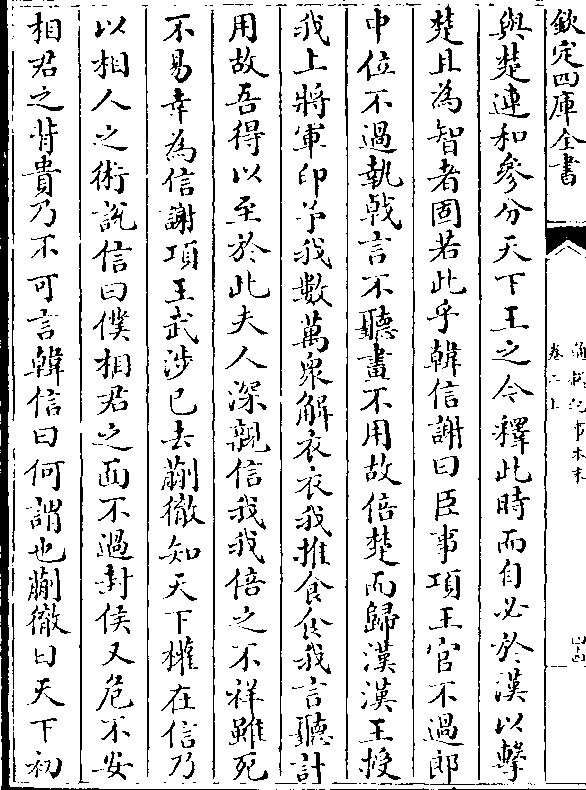 欽定四庫全書
通鑑紀事本末
卷二上
與楚連和參分天下王之今釋此時而自必於漢以擊
楚且為智者固若此乎韓信謝曰臣事項王官不過郎
中位不過執戟言不聽畫不用故倍楚而歸漢漢王授
我上將軍印予我數萬衆解衣衣我推食食我言聽計
用故吾得以至於此夫人深親信我我倍之不祥雖死
不易幸為信謝項王武渉已去蒯徹知天下權在信乃
以相人之術説信曰僕相君之面不過封侯又危不安
相君之背貴乃不可言韓信曰何謂也蒯徹曰天下初